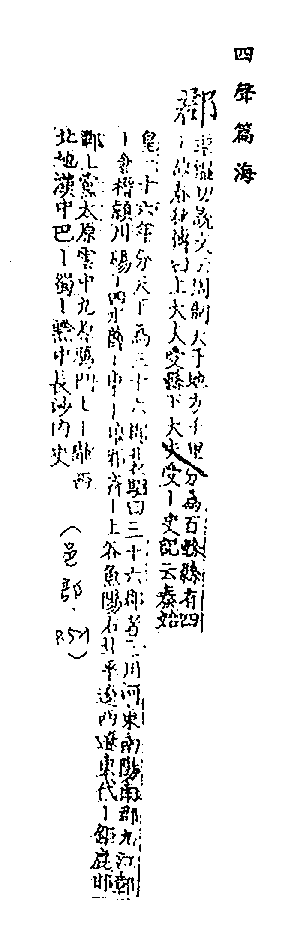 四聲篇海
郡
渠慍切說文云周制天下地方千里分為百縣縣有四
丨故春秋傳曰上大夫受縣下大夫受丨史記云秦始
皇二十六年分天下為三十六郡裴駰曰三十六郡者三川河東南陽南郡九江鄣
丨會稽潁川碭丨泗水薛丨東丨琅邪齊丨上谷漁陽右北平遼西遼東代丨鉅鹿邯
鄲上黨太原雲中九原鴈門上丨隴西
北地漢中巴丨蜀丨黔中長沙內史
（邑部、
P.521）